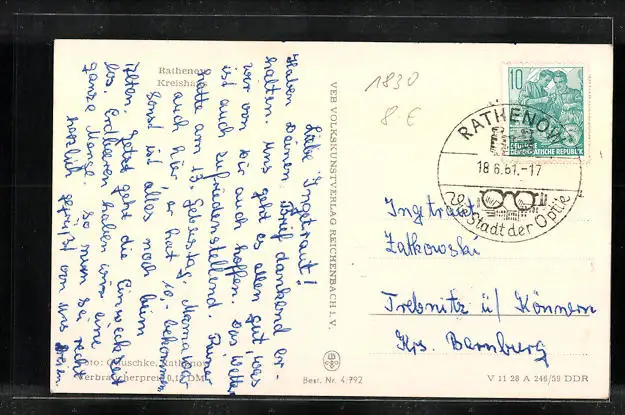 Rathenow
Kreishaus
Liebe Ingetraut!
Haben Deinen Brief dankend er-
halten. Uns geht es allen gut, was
wir von Dir auch hoffen. Das Wetter
ist auch zufriedenstellend. Rainer
hatte am 13. Geburtstag. Mama war
auch hier, er hat 10,- bekommen
Sonst ist alles noch beim
Alten. Jetzt geht die Einweckzeit
los, Erdbeeren haben wir eine
ganze Menge. So nun sei recht
herzlich gegrüßt von uns
VEB VOLKSKUNSTVERLAG REICHENBACH I. V.
1830
8.€
10
DEUTSCHE
DEMOKRATISCHE REPUBLIK
RATHENOW
18.6.61.-17
Die Stadt der Optik
Ingtraut
Zatkowski
Trebnitz ü/ Könnern
Krs. Bernburg
Foto: Rathenow
Verbraucherpreis 0,12 DM
Best. Nr. 4/792
V 11 28 A 246/59 DDR